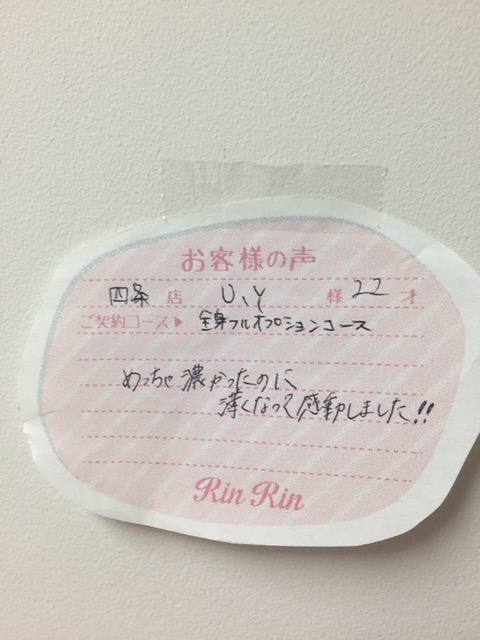 お客様の声
四条 店 U、Y 様 22 才
ご契約コース▶ 全身フルオプションコース
めっちゃ濃かったのに
薄くなって感動しました!!
Rin Rin